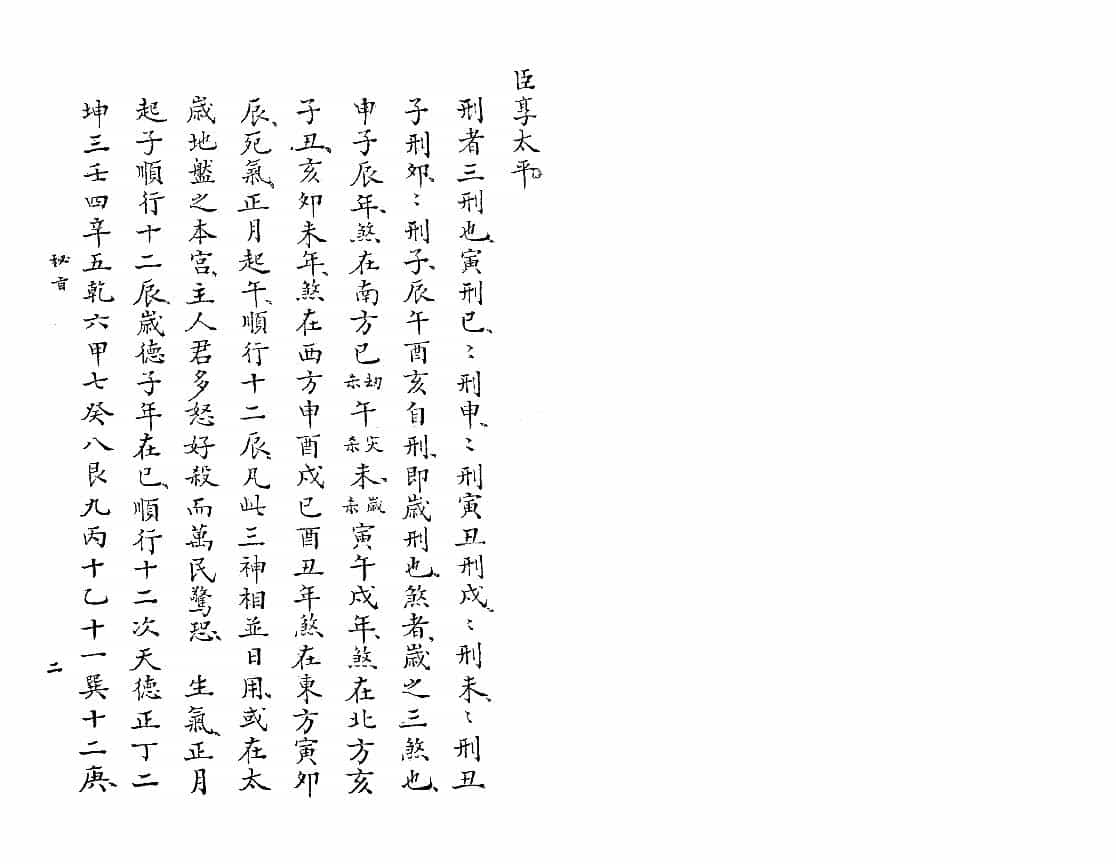 臣享太平。
刑者三刑也、寅刑巳、〻刑申、〻刑寅丑刑戌、〻刑未、〻刑丑
子刑卯、〻刑子、辰午酉亥自刑、即歲刑也、煞者、歲之三煞也、
申子辰年、煞在南方巳劫杀午灾杀未、歲杀寅午戌年、煞在北方亥
子丑、亥卯未年、煞在西方申酉戌巳酉丑年煞在東方寅卯
辰、死氣、正月起午、順行十二辰、凡此三神相並日用、或在太
歲地盤之本宮、主人君多怒好殺而萬民驚恐、 生氣、正月
起子順行十二辰、歲德子年在巳、順行十二次天德正丁二
坤三壬四辛五乾六甲七癸八艮九丙十乙十一巽十二庚、
秘旨
二